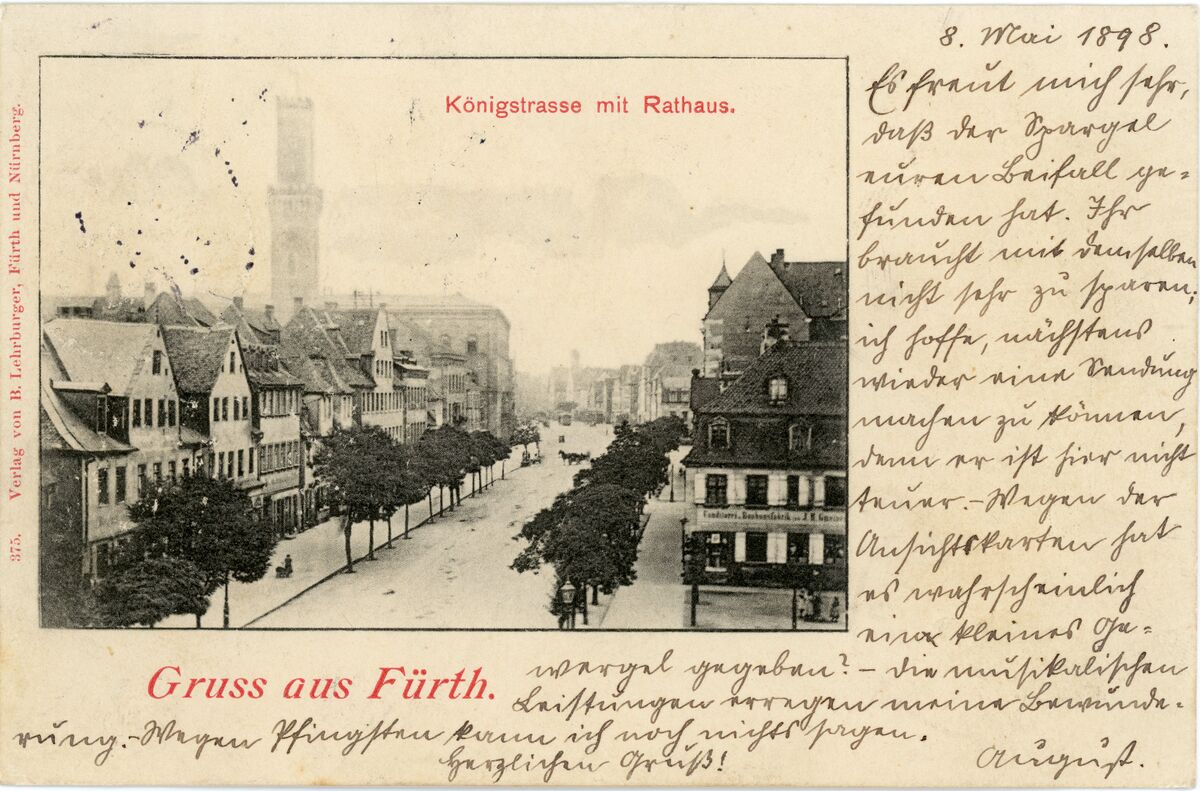 8. Mai 1898.
Es freut mich sehr,
daß der Spargel
euren Beifall ge-
funden hat. Ihr
braucht mit demselben
nicht sehr zu sparen;
ich hoffe, nächstens
wieder eine Sendung
machen zu können,
denn er ist hier nicht
teuer. - Wegen der
Ansichtskarten hat
es wahrscheinlich
ein kleines Ge-
wergel gegeben? - Die musikalischen
Leistungen erregen meine Bewunde-
rung. - Wegen Pfingsten kann ich noch nichts sagen.
Herzlichen Gruß!
August.
Königstrasse mit Rathaus.
Gruss aus Fürth.
375. Verlag von B. Lehrburger, Fürth und Nürnberg.
Conditorei u. Bonbonsfabrik von J. H.